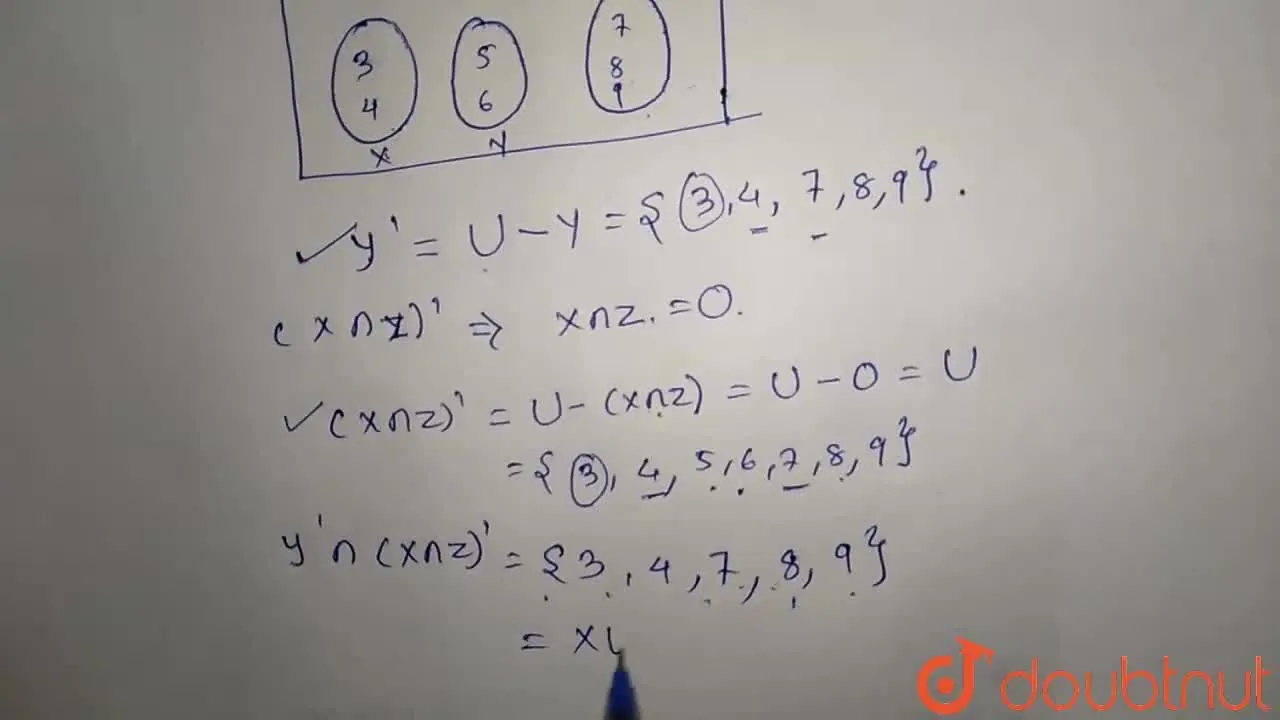 3 5 7
4 6 8
9
X Y
✓ y' = U - Y = { 3, 4, 7, 8, 9 } .
( X ∩ Z )' ⇒ X ∩ Z . = 0.
✓ ( X ∩ Z )' = U - ( X ∩ Z ) = U - 0 = U
= { 3, 4, 5, 6, 7, 8, 9 }
y' ∩ ( X ∩ Z )' = { 3, 4, 7, 8, 9 }
= X U
doubtnut